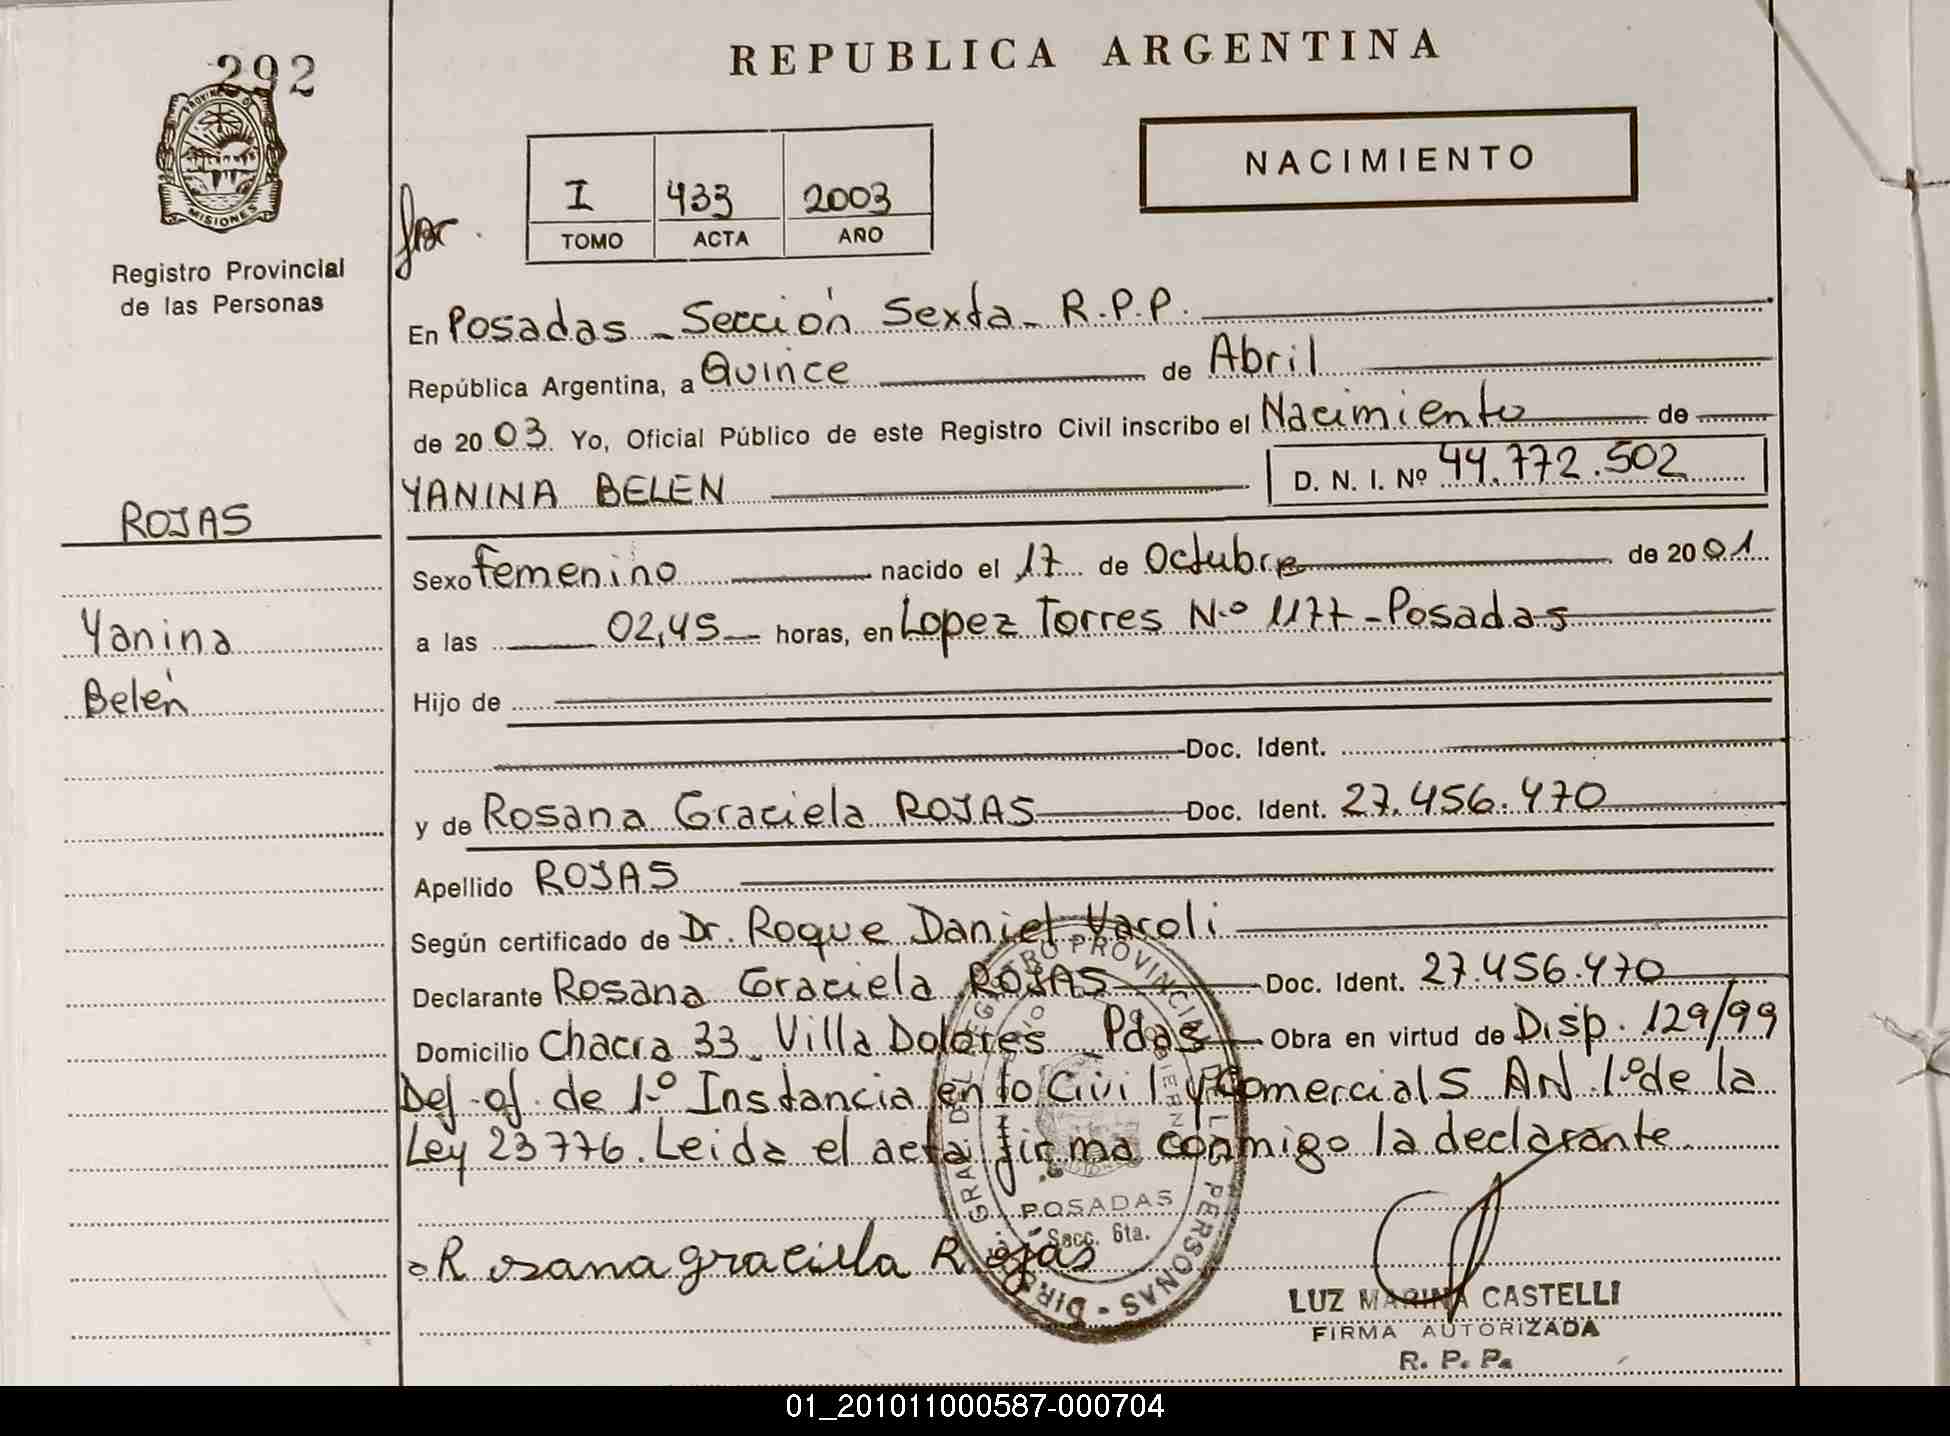 292
REPUBLICA ARGENTINA
PROVINCIA DE
MISIONES
Registro Provincial
de las Personas
I 433 2003
TOMO ACTA AÑO
NACIMIENTO
En Posadas - Sección Sexta - R.P.P.
República Argentina, a Quince de Abril
de 2003 Yo, Oficial Público de este Registro Civil inscribo el Nacimiento de
YANINA BELEN D. N. I. Nº 44.772.502
ROJAS
Sexo Femenino nacido el 17 de Octubre de 2001
Yanina
a las 02,45 horas, en Lopez Torres N.º 1177 - Posadas
Belén
Hijo de
Doc. Ident.
y de Rosana Graciela ROJAS Doc. Ident. 27.456.470
Apellido ROJAS
Según certificado de Dr. Roque Daniel Varoli
Declarante Rosana Graciela ROJAS Doc. Ident. 27.456.470
Domicilio Chacra 33 - Villa Dolores - Pdas Obra en virtud de Disp. 129/99
Def. of. de 1.º Instancia en lo Civil y Comercial S. AN. 1.º de la
Ley 23776. Leida el acta firma conmigo la declarante
POSADAS
Secc. 6ta.
Rosana graciela Rojas
LUZ MARINA CASTELLI
FIRMA AUTORIZADA
R. P. P.
01_201011000587-000704